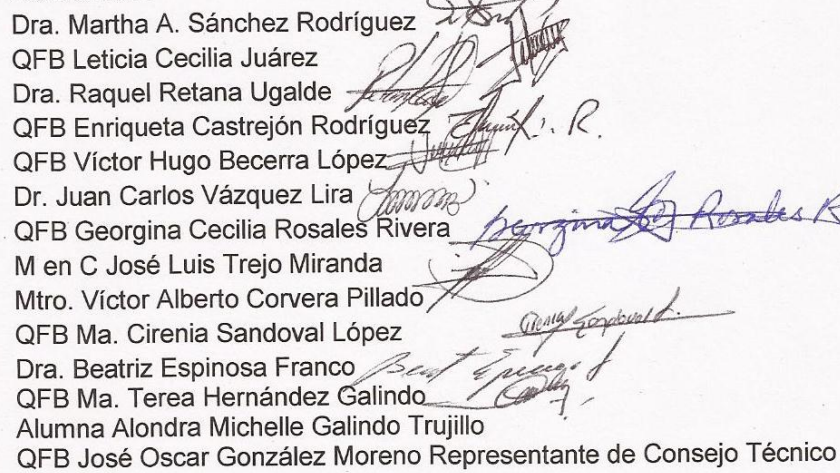 Dra. Martha A. Sánchez Rodríguez
QFB Leticia Cecilia Juárez
Dra. Raquel Retana Ugalde
QFB Enriqueta Castrejón Rodríguez
QFB Víctor Hugo Becerra López
Dr. Juan Carlos Vázquez Lira
QFB Georgina Cecilia Rosales Rivera Georgina Rosales R
M en C José Luis Trejo Miranda
Mtro. Víctor Alberto Corvera Pillado
QFB Ma. Cirenia Sandoval López
Dra. Beatriz Espinosa Franco
QFB Ma. Terea Hernández Galindo
Alumna Alondra Michelle Galindo Trujillo
QFB José Oscar González Moreno Representante de Consejo Técnico